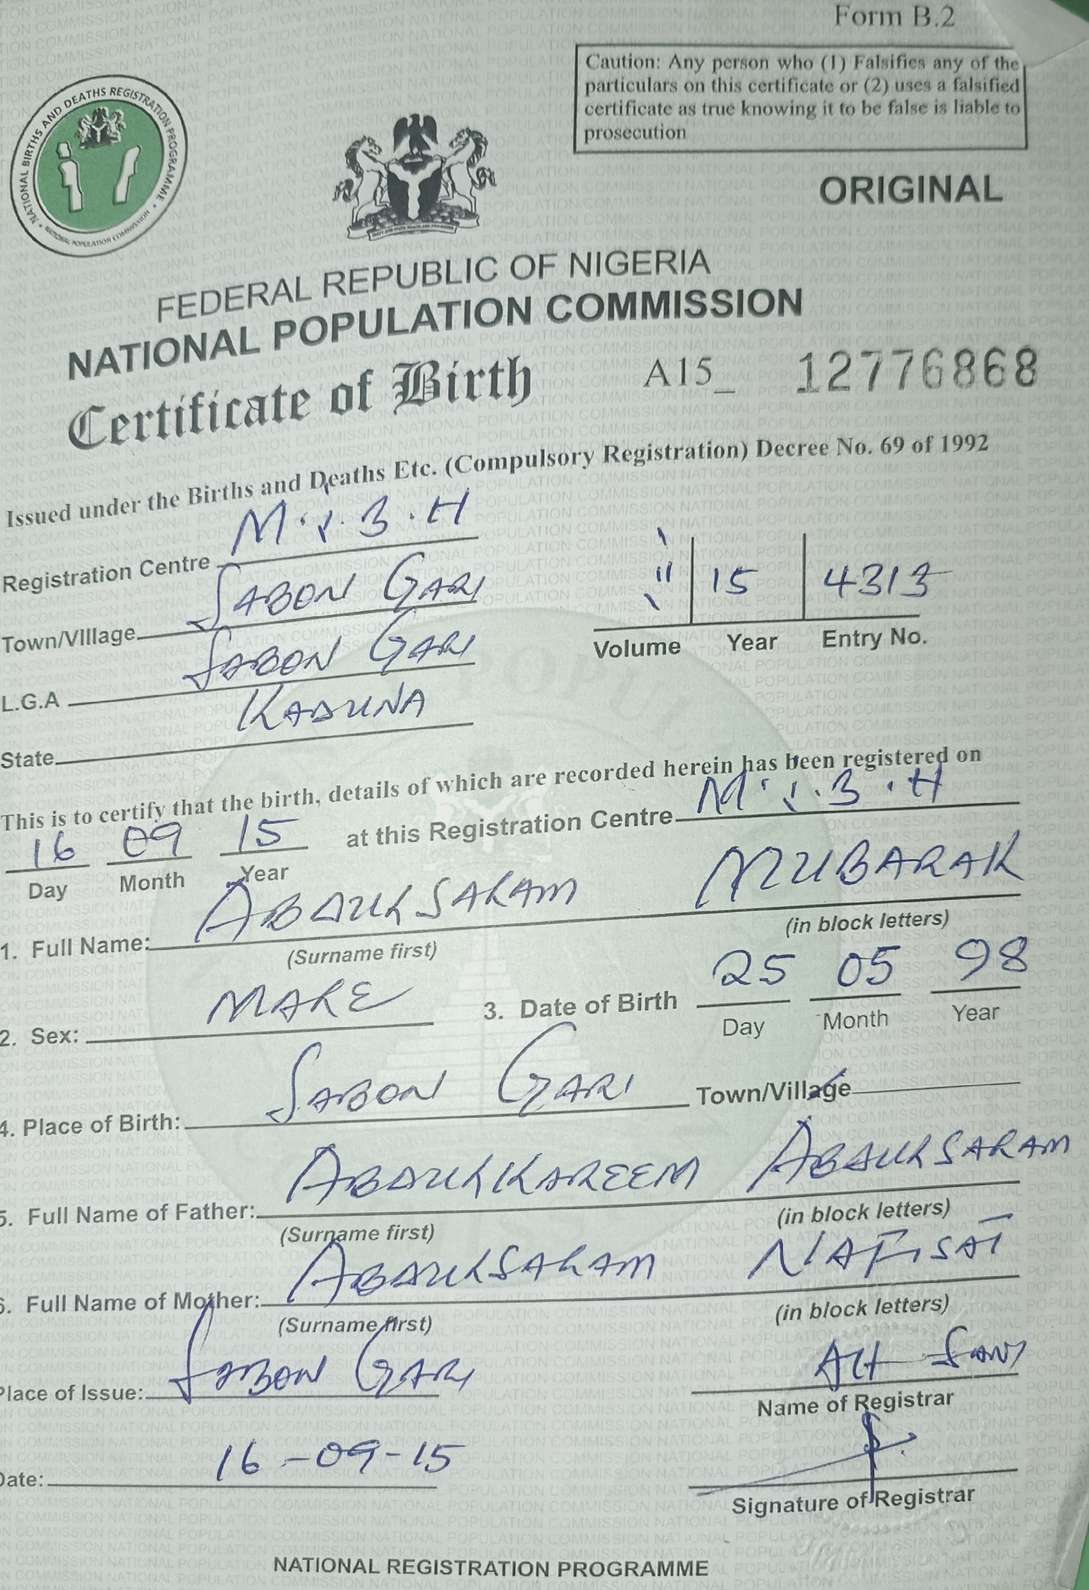 Form B.2
Caution: Any person who (1) Falsifies any of the
particulars on this certificate or (2) uses a falsified
certificate as true knowing it to be false is liable to
prosecution
NATIONAL BIRTHS AND DEATHS REGISTRATION PROGRAMME
NATIONAL POPULATION COMMISSION
ORIGINAL
FEDERAL REPUBLIC OF NIGERIA
NATIONAL POPULATION COMMISSION
Certificate of Birth A15_ 12776868
Issued under the Births and Deaths Etc. (Compulsory Registration) Decree No. 69 of 1992
Registration Centre M.I.B.H
Town/VIllage SABON GARI
L.G.A SABON GARI
State KADUNA
11 15 4313
Volume Year Entry No.
This is to certify that the birth, details of which are recorded herein has been registered on
16 09 15 at this Registration Centre M.I.B.H
Day Month Year
1. Full Name: ABDULSALAM MUBARAK
(Surname first) (in block letters)
2. Sex: MALE 3. Date of Birth 25 05 98
Day Month Year
4. Place of Birth: SABON GARI Town/Village
5. Full Name of Father: ABDULKAREEM ABDULSALAM
(Surname first) (in block letters)
6. Full Name of Mother: ABDULSALAM NAFISAT
(Surname first) (in block letters)
Place of Issue: SABON GARI
Name of Registrar
Date: 16-09-15
Signature of Registrar
NATIONAL REGISTRATION PROGRAMME